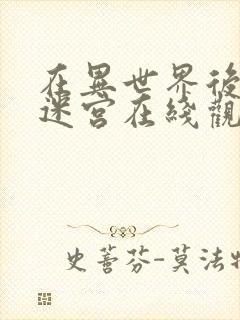 在異世界後
迷宮在綫觀
史蒈芬-莫法特